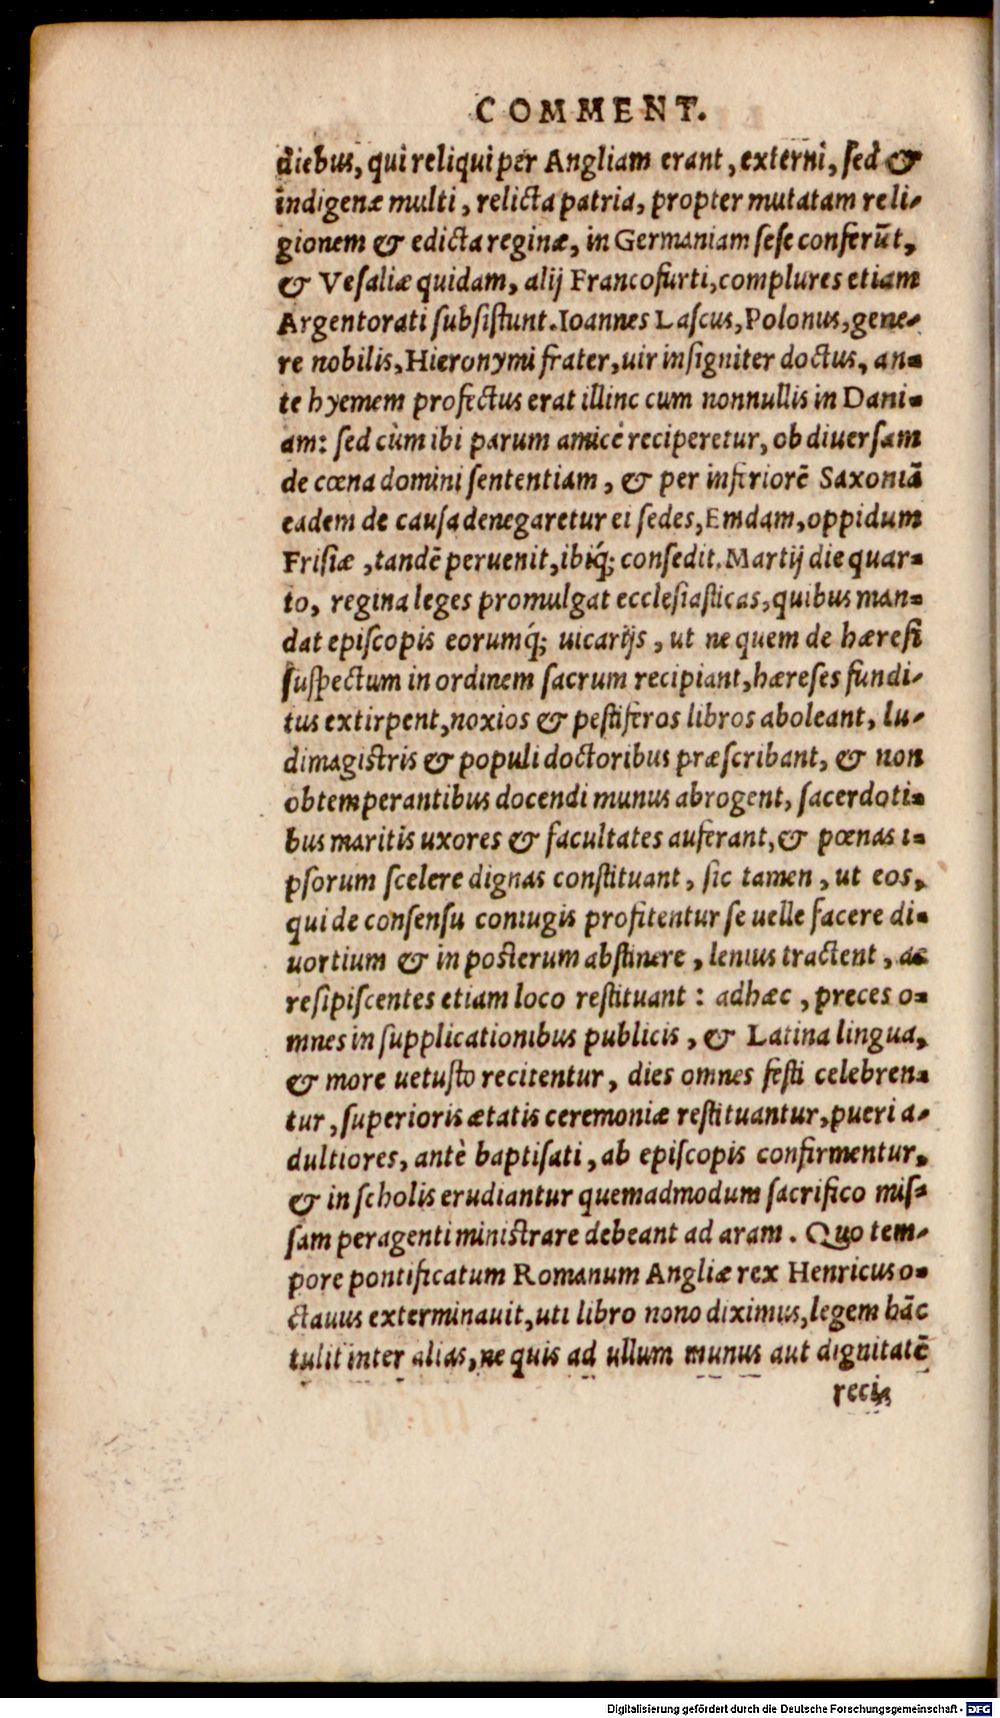 COMMENT.
diebus, qui reliqui per Angliam erant, externi, sed &
indigenæ multi, relicta patria, propter mutatam reli-
gionem & edicta reginæ, in Germaniam sese conferũt,
& Vesaliæ quidam, alij Francofurti, complures etiam
Argentorati subsistunt. Ioannes Lascus, Polonus, gene-
re nobilis, Hieronymi frater, uir insigniter doctus, an-
te hyemem profectus erat illinc cum nonnullis in Dani-
am: sed cùm ibi parum amicè reciperetur, ob diuersam
de cœna domini sententiam, & per inferiorẽ Saxoniã
eadem de causa denegaretur ei sedes, Emdam, oppidum
Frisiæ, tandẽ peruenit, ibiq́; consedit. Martij die quar-
to, regina leges promulgat ecclesiasticas, quibus man-
dat episcopis eorumq́; uicarijs, ut ne quem de hæresi
suspectum in ordinem sacrum recipiant, hæreses fundi-
tus extirpent, noxios & pestiferos libros aboleant, lu-
dimagistris & populi doctoribus præscribant, & non
obtemperantibus docendi munus abrogent, sacerdoti-
bus maritis uxores & facultates auferant, & pœnas i-
psorum scelere dignas constituant, sic tamen, ut eos,
qui de consensu coniugis profitentur se uelle facere di-
uortium & in posterum abstinere, lenius tractent, ac
resipiscentes etiam loco restituant: adhæc, preces o-
mnes in supplicationibus publicis, & Latina lingua,
& more uetusto recitentur, dies omnes festi celebren-
tur, superioris ætatis ceremoniæ restituantur, pueri a-
dultiores, antè baptisati, ab episcopis confirmentur,
& in scholis erudiantur quemadmodum sacrifico mis-
sam peragenti ministrare debeant ad aram. Quo tem-
pore pontificatum Romanum Angliæ rex Henricus o-
ctauus exterminauit, uti libro nono diximus, legem hãc
tulit inter alias, ne quis ad ullum munus aut dignitatẽ
reci-
Digitalisierung gefördert durch die Deutsche Forschungsgemeinschaft - DFG